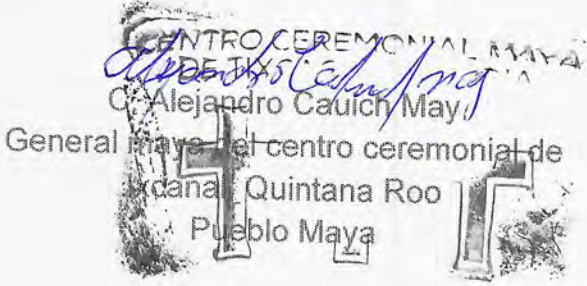 CENTRO CEREMONIAL MAYA
DE
C. Alejandro Cauich May
General maya del centro ceremonial de
Quintana Roo
Pueblo Maya